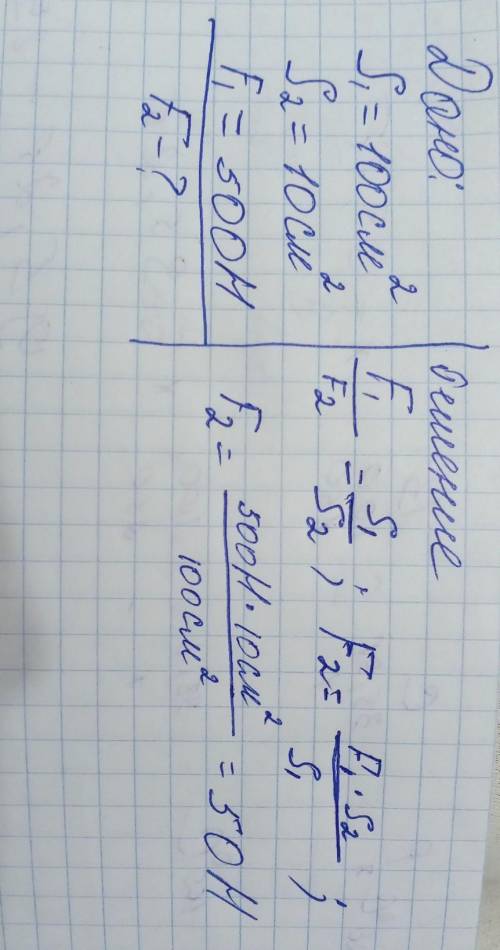 Дано:
S₁ = 100см²
S₂ = 10см²
F₁ = 500Н
F₂ - ?
Решение
F₁/F₂ = S₁/S₂ ; F₂ = F₁·S₂/S₁ ;
F₂ = 500Н·10см²/100см² = 50Н